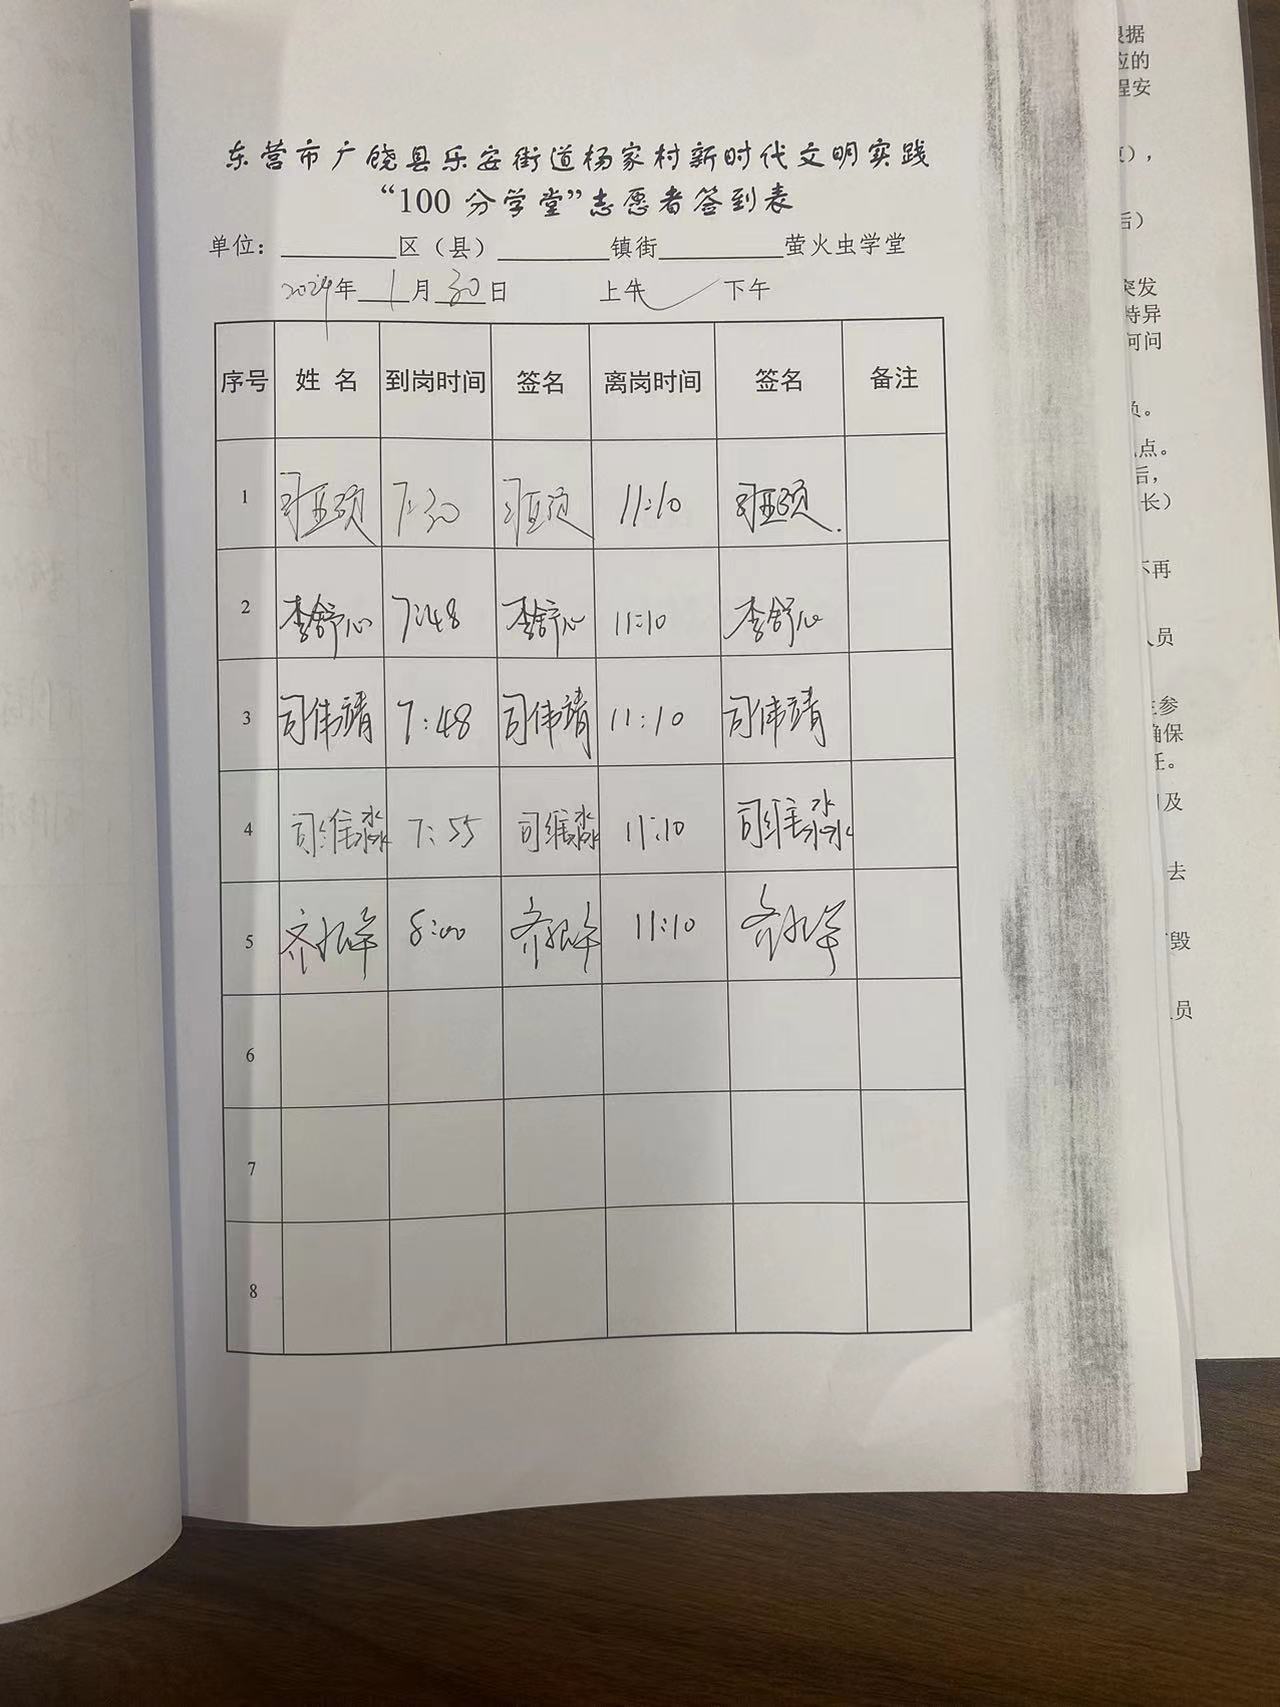 东营市广饶县乐安街道杨家村新时代文明实践
“100 分学堂”志愿者签到表
单位：________区（县）________镇街_________萤火虫学堂
2024年 1 月 30 日 上午 ✓ 下午
序号 姓 名 到岗时间 签名 离岗时间 签名 备注
1 司亚项 7:30 司亚项 11:10 司亚项
2 李舒心 7:48 李舒心 11:10 李舒心
3 司伟靖 7:48 司伟靖 11:10 司伟靖
4 司维淼 7:55 司维淼 11:10 司维淼
5 齐 8:00 齐 11:10 齐
6
7
8
据
应的
程安
，
后）
突发
特异
何问
员。
点。
后，
长）
不再
人员
参
确保
任。
及
去
毁
员